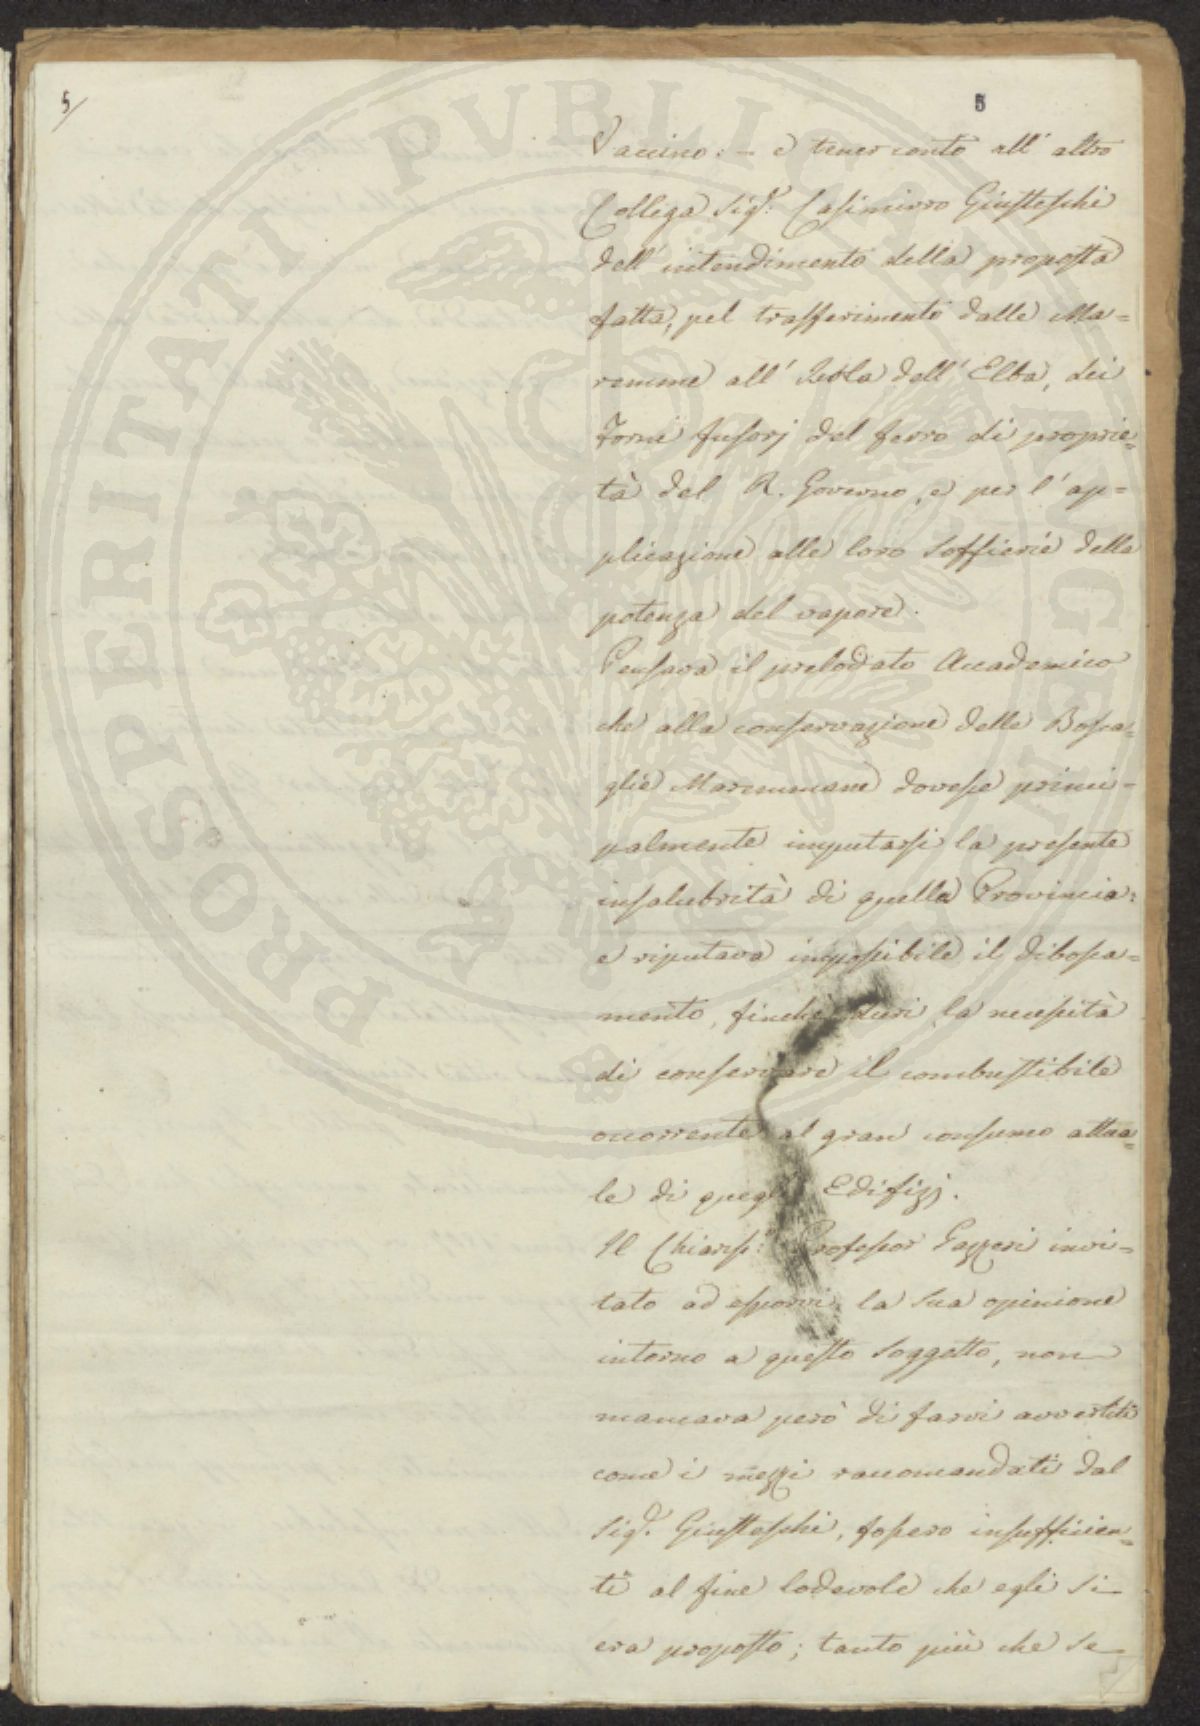 5/
5
Vaccino: - e tener conto all' altro
Collega Sigr. Casimirro Giusteschi
dell' intendimento della proposta
fatta, pel trasferimento dalle Ma=
remme all' Isola dell' Elba, dei
Forni fusorj del ferro di proprie=
tà del R. Governo, e per l' ap=
plicazione alle loro Soffierie della
potenza del vapore.
Pensava il prelodato Accademico
che alla conservazione delle Bosca=
glie Maremmane dovesse princi=
palmente imputarsi la presente
insalubrità di quella Provincia:
e riputava impossibile il disbosca=
mento, finchè duri la necessità
di conservare il combustibile
occorrente al gran consumo attua=
le di quegli Edifizj.
Il Chiariss:mo Professor Gazzeri invi=
tato ad esporvi la sua opinione
intorno a questo Soggetto, non
mancava però di farvi avvertiti
come i mezzi raccomandati dal
Sigr. Giusteschi, fossero insufficien=
ti al fine lodevole che egli si
era proposto; tanto più che se
PROSPERITATI PVBLICAE AVGENDAE